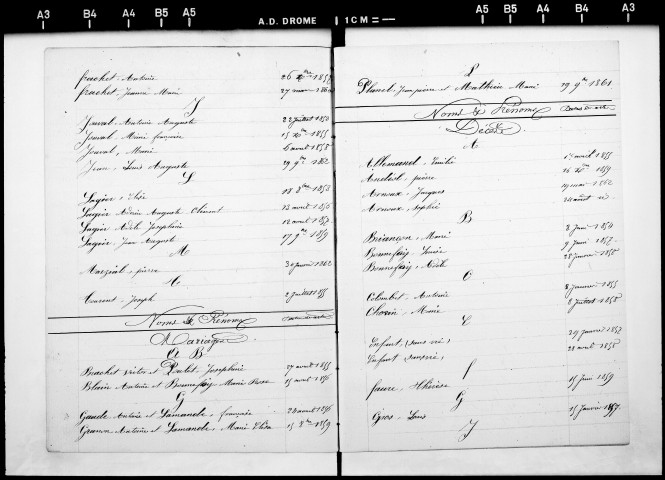 A3 B4 A4 B5 A5 A.D. DROME 1CM A5 B5 A4 B4 A3
frachet - Antoine 26 1857
frachet Jeanne Marie 27 mars
J
Jouval - Antoine Auguste 22 juillet 1850
Jouval, Marie françoise 15 1855
Jouval, Marie 6 avril 1858
Jean - Louis Auguste 29 9bre 1862
L
Lagier - Elisée 18 1853
Lagier Adrien Auguste Clément 13 avril 1856
Lagier Adèle Joséphine 12 avril 1857
Lagier, Jean Auguste 17 9bre 1859
M
Marzial - pierre 30 janvier 1862
Laurent - Joseph 2 juillet 1855
Noms & Prénoms
Mariages
A B
Brachet Victor et Joséphine 27 avril 1855
Blain Antoine et Bonnefoy Marie Rose 15 avril 1856
G
Gaude Antoine et Lamande, françoise 24 avril 1856
Antoine et Lamande, Marie Elisa 15 1859
P
Planel Jean pierre et Mathieu Marie 29 9bre 1861
Noms & Prénoms
Décès
A
Allemand - Emilie 17 avril 1855
pierre 16 1859
Arnoux Jacques 19 mai 1862
Arnoux Sophie 24 août id
B
Briançon - Marie 8 juin 1854
Bonnefoy - 9 juin 1857
Bonnefoy - Adèle 28 janvier 1858
C
Colombet - Antoine 8 janvier 1855
Marie 8 juillet 1858
E
Enfant (sans vie) 29 janvier 1857
Enfant (sans vie) 28 avril 1858
f
faure - Thérèse 15 juin 1859
G
Gros - Louis 15 janvier 1857
J